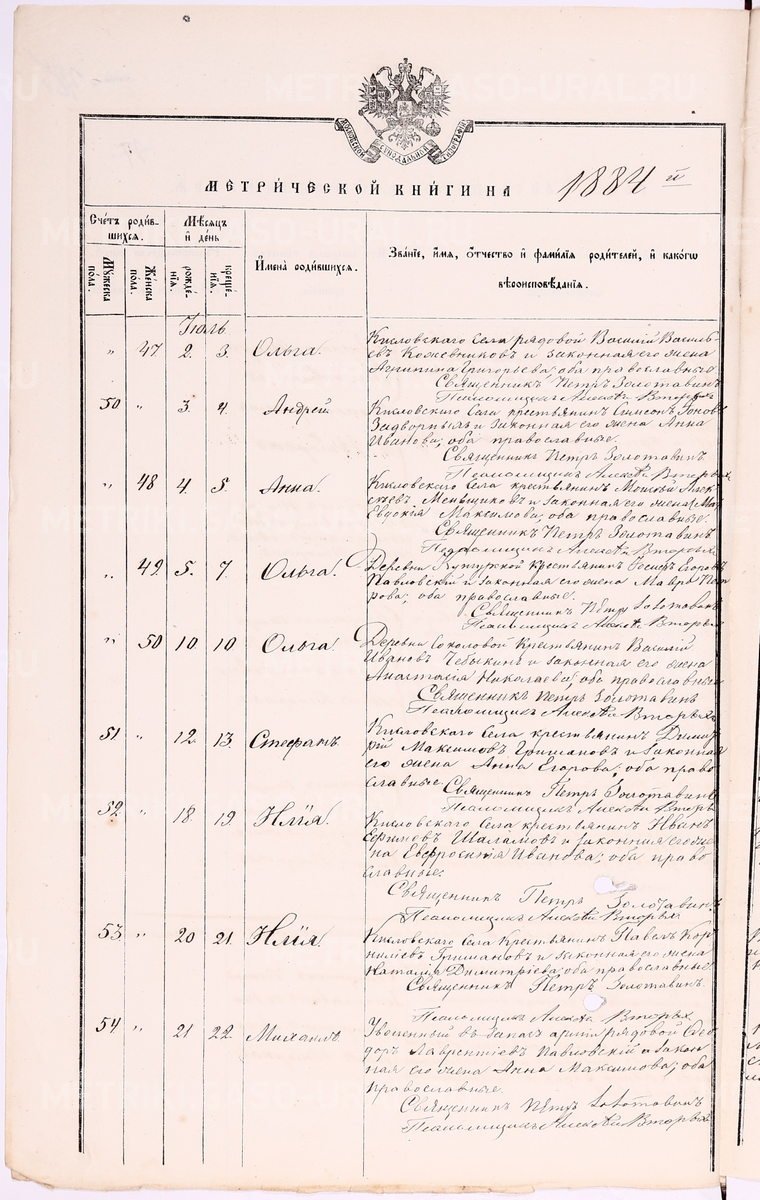 МОСКОВСКОЙ СИНОДАЛЬНОЙ ТИПОГРАФІИ
МЕТРИ́ЧЕСКОЙ КНИ́ГИ НА 1884 й
Сче́тъ роди́в-
шихся.
Мѣ́сяцъ
и҆ де́нь
И҆мена̀ роди́вшихся.
Зва́нїе, и҆́мя, ѻ҆́тчество и҆ фами́лїя роди́телей, и҆ како́гѡ
вѣроисповѣ́данїя.
Му́жеска
по́ла.
Же́нска
по́ла.
рожде́-
нїя.
креще́-
нїя.
Іюль
" 47 2. 3. Ольга. Кисловскаго Села рядовой Василій Василь-
евъ Кожевниковъ и законная его жена
Агрипина Григорьева; оба православные.
Священникъ Петръ Золотавинъ
Псаломщикъ Алексѣй Вторыхъ
50 " 3. 4. Андрей. Кисловскаго Села крестьянинъ Симеонъ Іоновъ
Задворныхъ и законная его жена Анна
Иванова; оба православные.
Священникъ Петръ Золотавинъ
Псаломщикъ Алексѣй Вторыхъ
" 48 4. 5. Анна. Кисловскаго Села крестьянинъ Моисей Алек-
сѣевъ Меньщиковъ и законная его жена
Евдокія Максимова; оба православные.
Священникъ Петръ Золотавинъ
Псаломщикъ Алексѣй Вторыхъ
" 49 5. 7. Ольга. Деревни крестьянинъ Іосифъ Егоровъ
Павловскій и законная его жена Мавра Пет-
рова; оба православные.
Священникъ Петръ Золотавинъ
Псаломщикъ Алексѣй Вторыхъ
" 50 10 10 Ольга. Деревни Соколовой Крестьянинъ Василій
Ивановъ Чебыкинъ и законная его жена
Анастасія Николаева; оба православные
Священникъ Петръ Золотавинъ
Псаломщикъ Алексѣй Вторыхъ
51 " 12. 13. Стефанъ. Кисловскаго Села крестьянинъ Димит-
рій Максимовъ Гришановъ и законная
его жена Анна Егорова; оба право
славные. Священникъ Петръ Золотавинъ
Псаломщикъ Алексѣй Вторыхъ
52. " 18. 19. Илія. Кисловскаго Села крестьянинъ Иванъ
Ефимовъ Шаламовъ и законная его же-
на Евфросинія Иванова; оба право
славные.
Священникъ Петръ Золотавинъ
Псаломщикъ Алексѣй Вторыхъ
53 " 20 21. Илія. Кисловскаго Села Крестьянинъ Павелъ Кор-
ниліевъ Гришановъ и законная его жена
Наталія Димитріева; оба православные.
Священникъ Петръ Золотавинъ.
Псаломщикъ Алексѣй Вторыхъ
54 " 21 22. Михаилъ. Уволенный въ запасъ арміи рядовой Ѳео-
доръ Лаврентіевъ Павловскій и закон
ная его жена Анна Максимова; оба
православные.
Священникъ Петръ Золотавинъ
Псаломщикъ Алексѣй Вторыхъ